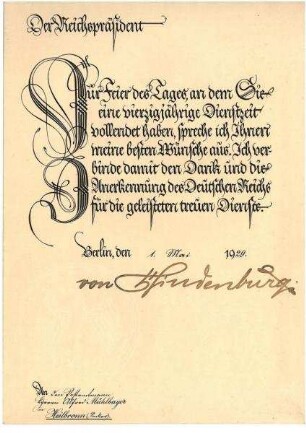 Der Reichspräsident
Zur Feier des Tages, an dem Sie
eine vierzigjährige Dienstzeit
vollendet haben, spreche ich Ihnen
meine besten Wünsche aus. Ich ver-
binde damit den Dank und die
Anerkennung des Deutschen Reichs
für die geleisteten treuen Dienste.
Berlin, den 1. Mai 1929.
von Hindenburg.
An
Herrn Alfred Mühlbayer
in Heilbronn